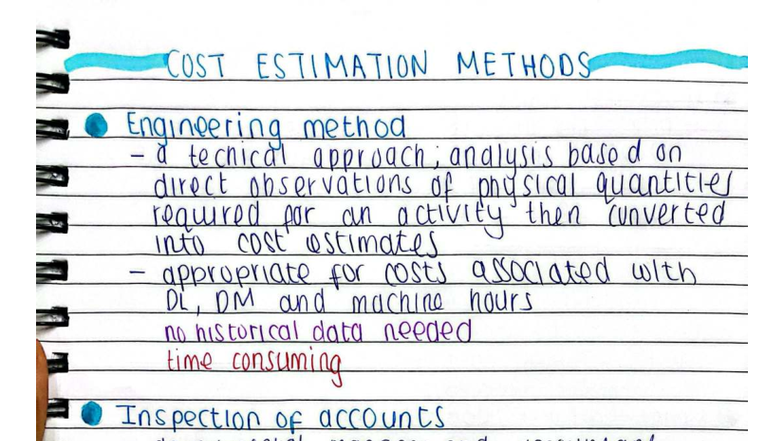 COST ESTIMATION METHODS
Engineering method
- a techical approach; analysis based on
direct observations of physical quantities
required for an activity then converted
into cost estimates
- appropriate for costs associated with
DL, DM and machine hours
no historical data needed
time consuming
Inspection of accounts